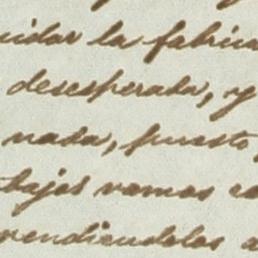 uidar la fabrica
desesperada, y
nada, puesto
bajos vamos co
rendiendolos a